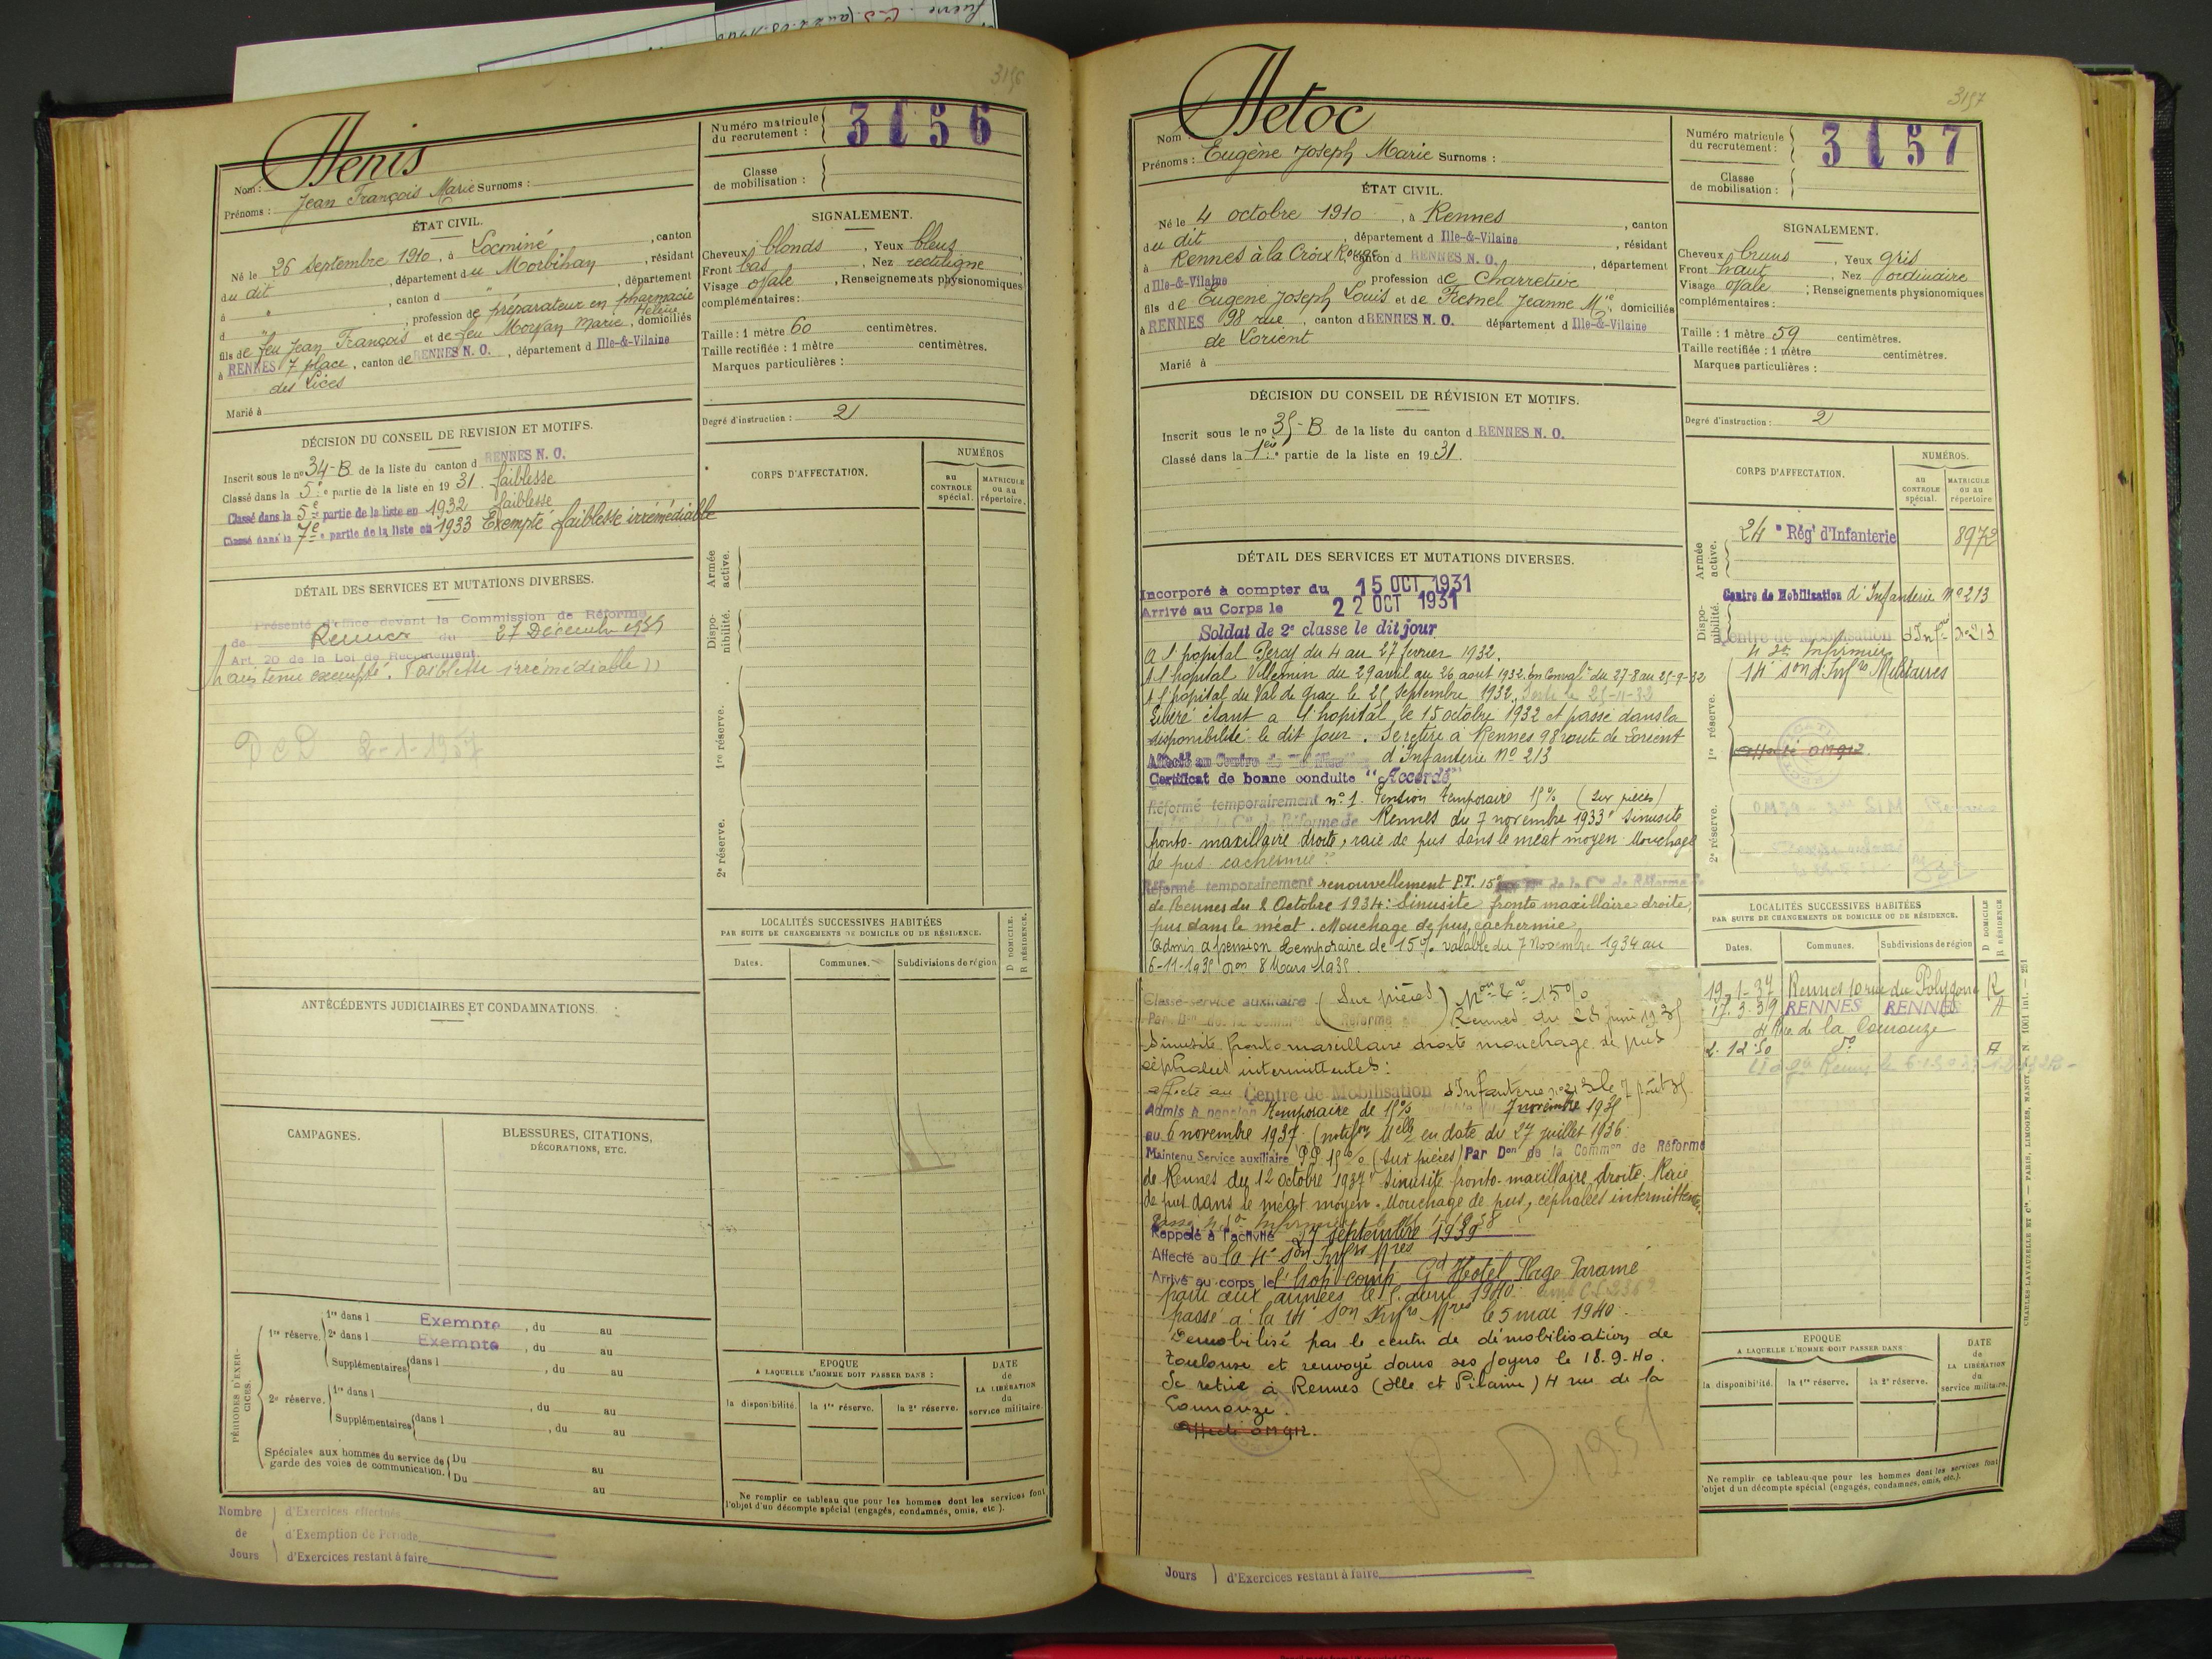 3156
Nom : Henis
Prénoms : Jean François Marie Surnoms :
ÉTAT CIVIL.
Né le 26 septembre 1910, à Locminé, canton
du dit, département du Morbihan, résidant
à " , canton d " , département
d " , profession de préparateur en pharmacie
fils de feu Jean François et de feu Morvan Marie Hélène, domiciliés
à RENNES 7 place, canton de RENNES N. O., département d Ille-&-Vilaine
des Lices
Marié à
DÉCISION DU CONSEIL DE REVISION ET MOTIFS.
Inscrit sous le nº 34-B de la liste du canton d RENNES N. O.
Classé dans la 5e partie de la liste en 1931. faiblesse
Classé dans la 5e partie de la liste en 1932 faiblesse
Classé dans la 7e partie de la liste en 1933 Exempté faiblesse irrémédiable
DÉTAIL DES SERVICES ET MUTATIONS DIVERSES.
Présenté d'office devant la Commission de Réforme
de Rennes du 27 Décembre 1939
Art. 20 de la Loi de Recrutement.
Maintenu exempté. Faiblesse irrémédiable))
DCD 2-1-1957
ANTÉCÉDENTS JUDICIAIRES ET CONDAMNATIONS.
CAMPAGNES.
BLESSURES, CITATIONS,
DÉCORATIONS, ETC.
PÉRIODES D'EXERCICES.
1re réserve. 1re dans l Exempte, du au
2e dans l Exempte, du au
Supplémentaires dans l , du au
2e réserve. 1re dans l , du au
Supplémentaires dans l , du au
Spéciales aux hommes du service de garde des voies de communication. Du au
Du au
Nombre de Jours
d'Exercices effectués
d'Exemption de Période
d'Exercices restant à faire
Numéro matricule du recrutement : 3156
Classe de mobilisation :
SIGNALEMENT.
Cheveux blonds, Yeux bleus
Front bas, Nez rectiligne
Visage ovale, Renseignements physionomiques
complémentaires :
Taille : 1 mètre 60 centimètres.
Taille rectifiée : 1 mètre centimètres.
Marques particulières :
Degré d'instruction : 2
CORPS D'AFFECTATION.
NUMÉROS
au CONTROLE spécial.
MATRICULE ou au répertoire.
Armée active.
Disponibilité.
1re réserve.
2e réserve.
LOCALITÉS SUCCESSIVES HABITÉES
PAR SUITE DE CHANGEMENTS DE DOMICILE OU DE RÉSIDENCE.
Dates. Communes. Subdivisions de région
D DOMICILE.
R RÉSIDENCE.
EPOQUE
A LAQUELLE L'HOMME DOIT PASSER DANS :
la disponibilité. la 1re réserve. la 2e réserve.
DATE de LA LIBÉRATION du service militaire.
Ne remplir ce tableau que pour les hommes dont les services font
l'objet d'un décompte spécial (engagés, condamnés, omis, etc.).
3157
Nom : Hetoc
Prénoms : Eugène Joseph Marie Surnoms :
ÉTAT CIVIL.
Né le 4 octobre 1910, à Rennes, canton
du dit, département d Ille-&-Vilaine, résidant
à Rennes à la Croix Rouge, canton d RENNES N. O., département
d Ille-&-Vilaine, profession de Charretier
fils de Eugène Joseph Louis et de Fresnel Jeanne Mie, domiciliés
à RENNES 98 rue, canton d RENNES N. O. département d Ille-&-Vilaine
de Lorient
Marié à
DÉCISION DU CONSEIL DE RÉVISION ET MOTIFS.
Inscrit sous le nº 35-B de la liste du canton d RENNES N. O.
Classé dans la 1ère partie de la liste en 1931.
DÉTAIL DES SERVICES ET MUTATIONS DIVERSES.
Incorporé à compter du 15 OCT 1931
Arrivé au Corps le 22 OCT 1931
Soldat de 2e classe le dit jour
A l'hopital Percy du 4 au 27 fevrier 1932.
A l'hopital Villemin du 29 avril au 26 aout 1932. En Convalce du 27-8 au 25-9-32
A l'hopital du Val de grace le 25 septembre 1932.
Libéré étant a l'hopital le 15 octobre 1932 et passé dans la
disponibilité le dit jour. Se retire à Rennes 98 route de Lorient
Affecté au Centre de Mobilisation d'Infanterie Nº 213
Certificat de bonne conduite "Accordé"
Réformé temporairement nº 1. Pension temporaire 15% (sur pièces)
de la Con de Réforme de Rennes du 7 novembre 1933 "sinusite
fronto-maxillaire droite, raie de pus dans le méat moyen. Mouchage
de pus cachesmie"
Réformé temporairement renouvellement P.T. 15% de la Con de Réforme
de Rennes du 2 Octobre 1934: Sinusite fronto maxillaire droite,
pus dans le méat. Mouchage de pus, cachermie
Admis à pension temporaire de 15% valable du 7 Novembre 1934 au
6-11-1935 Don 8 Mars 1935.
Classé service auxiliaire (Sur pièces) 15%
Par Don de la Common de Réforme de Rennes du 28 juin 1935
Sinusite fronto maxillaire droite mouchage de pus
céphalées intermittentes:
affecté au Centre de Mobilisation d'Infanterie nº 213 le 7 août 35
Admis à pension temporaire de 15% valable du 7 novembre 1935
au 6 novembre 1937. (notifon Melle en date du 27 juillet 1936.
Maintenu Service auxiliaire P.P 15% (sur pièces) Par Don de la Common de Réforme
de Rennes du 12 octobre 1937 "Sinusite fronto-maxillaire droite. Raie
de pus dans le méat moyen. Mouchage de pus, céphalées intermittentes.
Rappelé à l'activité 27 septembre 1939
Affecté au la 4e Son Infrs Mres
Arrivé au corps le l'hop. comp. Gd Hotel Plage Paramé
parti aux armées le 5 avril 1940.
passé à la 14e Son Infrs Mres le 5 mai 1940.
Démobilisé par le centre de démobilisation de
Toulouse et renvoyé dans ses foyers le 18.9.40.
Se retire à Rennes (Ille et Vilaine) 4 rue de la
Courrouze.
Affecté OM 912.
R D 1951
Jours d'Exercices restant à faire
Numéro matricule du recrutement : 3157
Classe de mobilisation :
SIGNALEMENT.
Cheveux bruns, Yeux gris
Front haut, Nez ordinaire
Visage ovale ; Renseignements physionomiques
complémentaires :
Taille : 1 mètre 59 centimètres.
Taille rectifiée : 1 mètre centimètres.
Marques particulières :
Degré d'instruction : 2
CORPS D'AFFECTATION.
NUMÉROS.
au CONTROLE spécial.
MATRICULE ou au répertoire
Armée active.
24e Régt d'Infanterie 8972
Disponibilité.
Centre de Mobilisation d'Infanterie Nº 213
Centre de Mobilisation d'Infrie Nº 213
4e Son Infirmiers
14e Son d'Infres Militaires
1re réserve.
Affecté OM 912
2e réserve.
LOCALITÉS SUCCESSIVES HABITÉES
PAR SUITE DE CHANGEMENTS DE DOMICILE OU DE RÉSIDENCE.
Dates. Communes. Subdivisions de région
D DOMICILE
R RÉSIDENCE
19-1-37 Rennes 10 rue du Polygone R
17.3.39 RENNES RENNES A
4 Rue de la Courrouze
2.12.50 do A
EPOQUE
A LAQUELLE L'HOMME DOIT PASSER DANS
la disponibilité. la 1re réserve. la 2e réserve.
DATE de LA LIBÉRATION du service militaire.
Ne remplir ce tableau que pour les hommes dont les services font
l'objet d'un décompte spécial (engagés, condamnés, omis, etc.).
CHARLES-LAVAUZELLE ET Cie — PARIS, LIMOGES, NANCY. N 1001 int. — 251